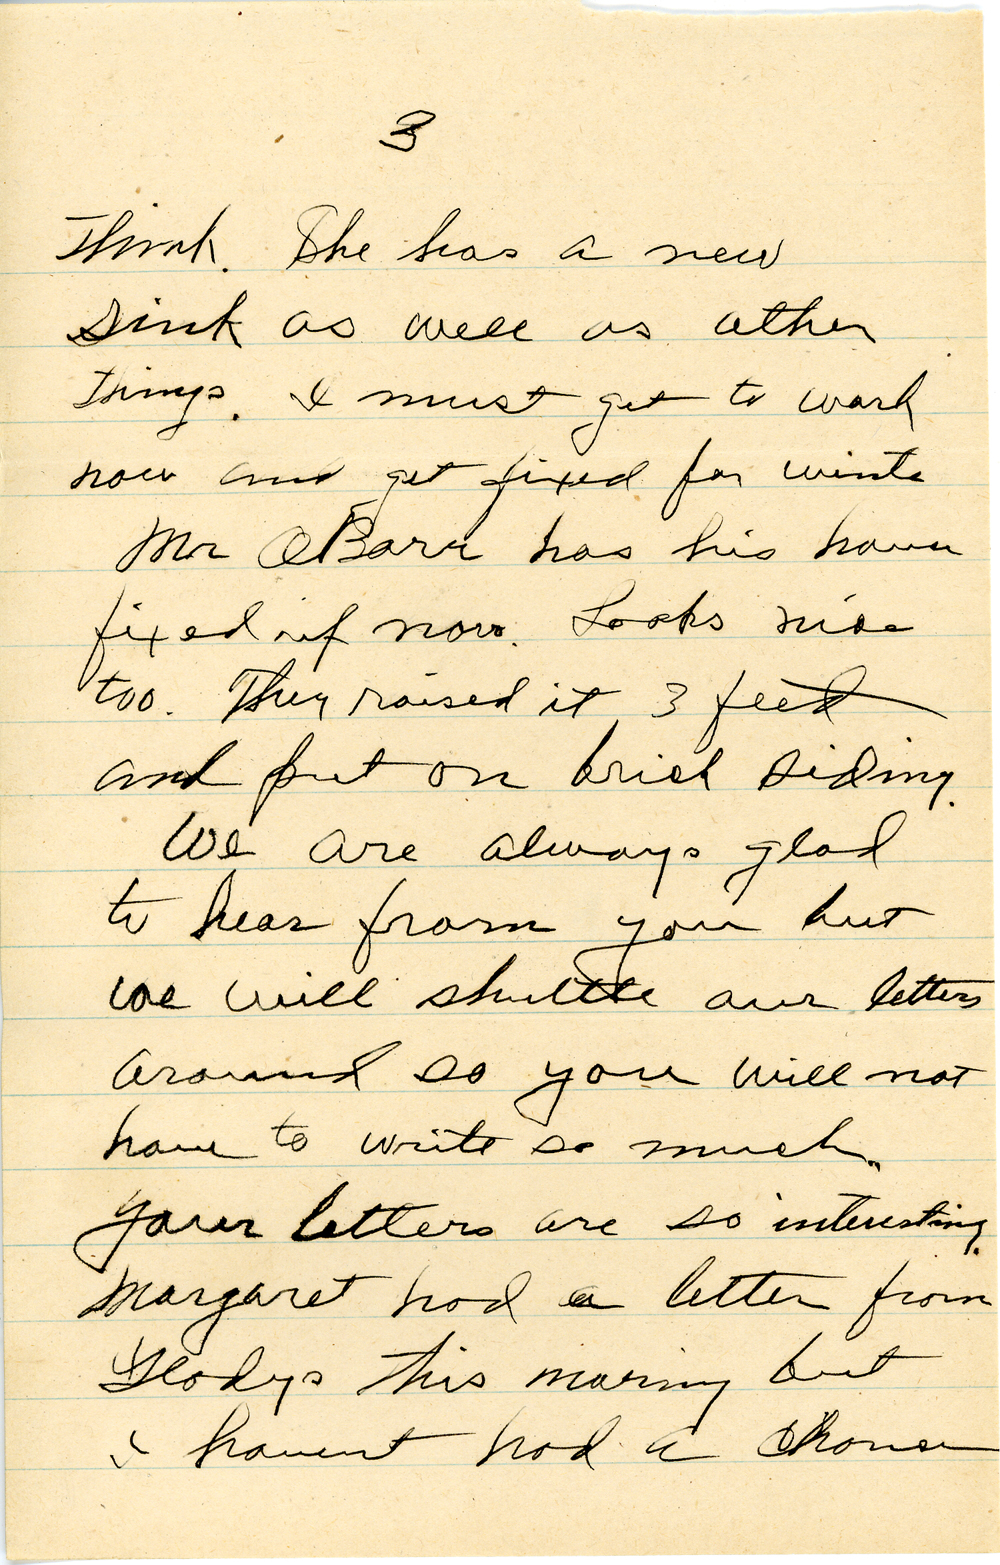 3
think. She has a new
sink as well as other
things. I must get to work
now and get fixed for winte
Mr OBarr has his house
fixed up now. Looks nice
too. They raised it 3 feet
and put on brick siding.
We are always glad
to hear from you but
we will shuttle our letters
around so you will not
have to write so much.
Your letters are so interesting.
Margaret had a letter from
Gladys this morning but
I havent had a chance